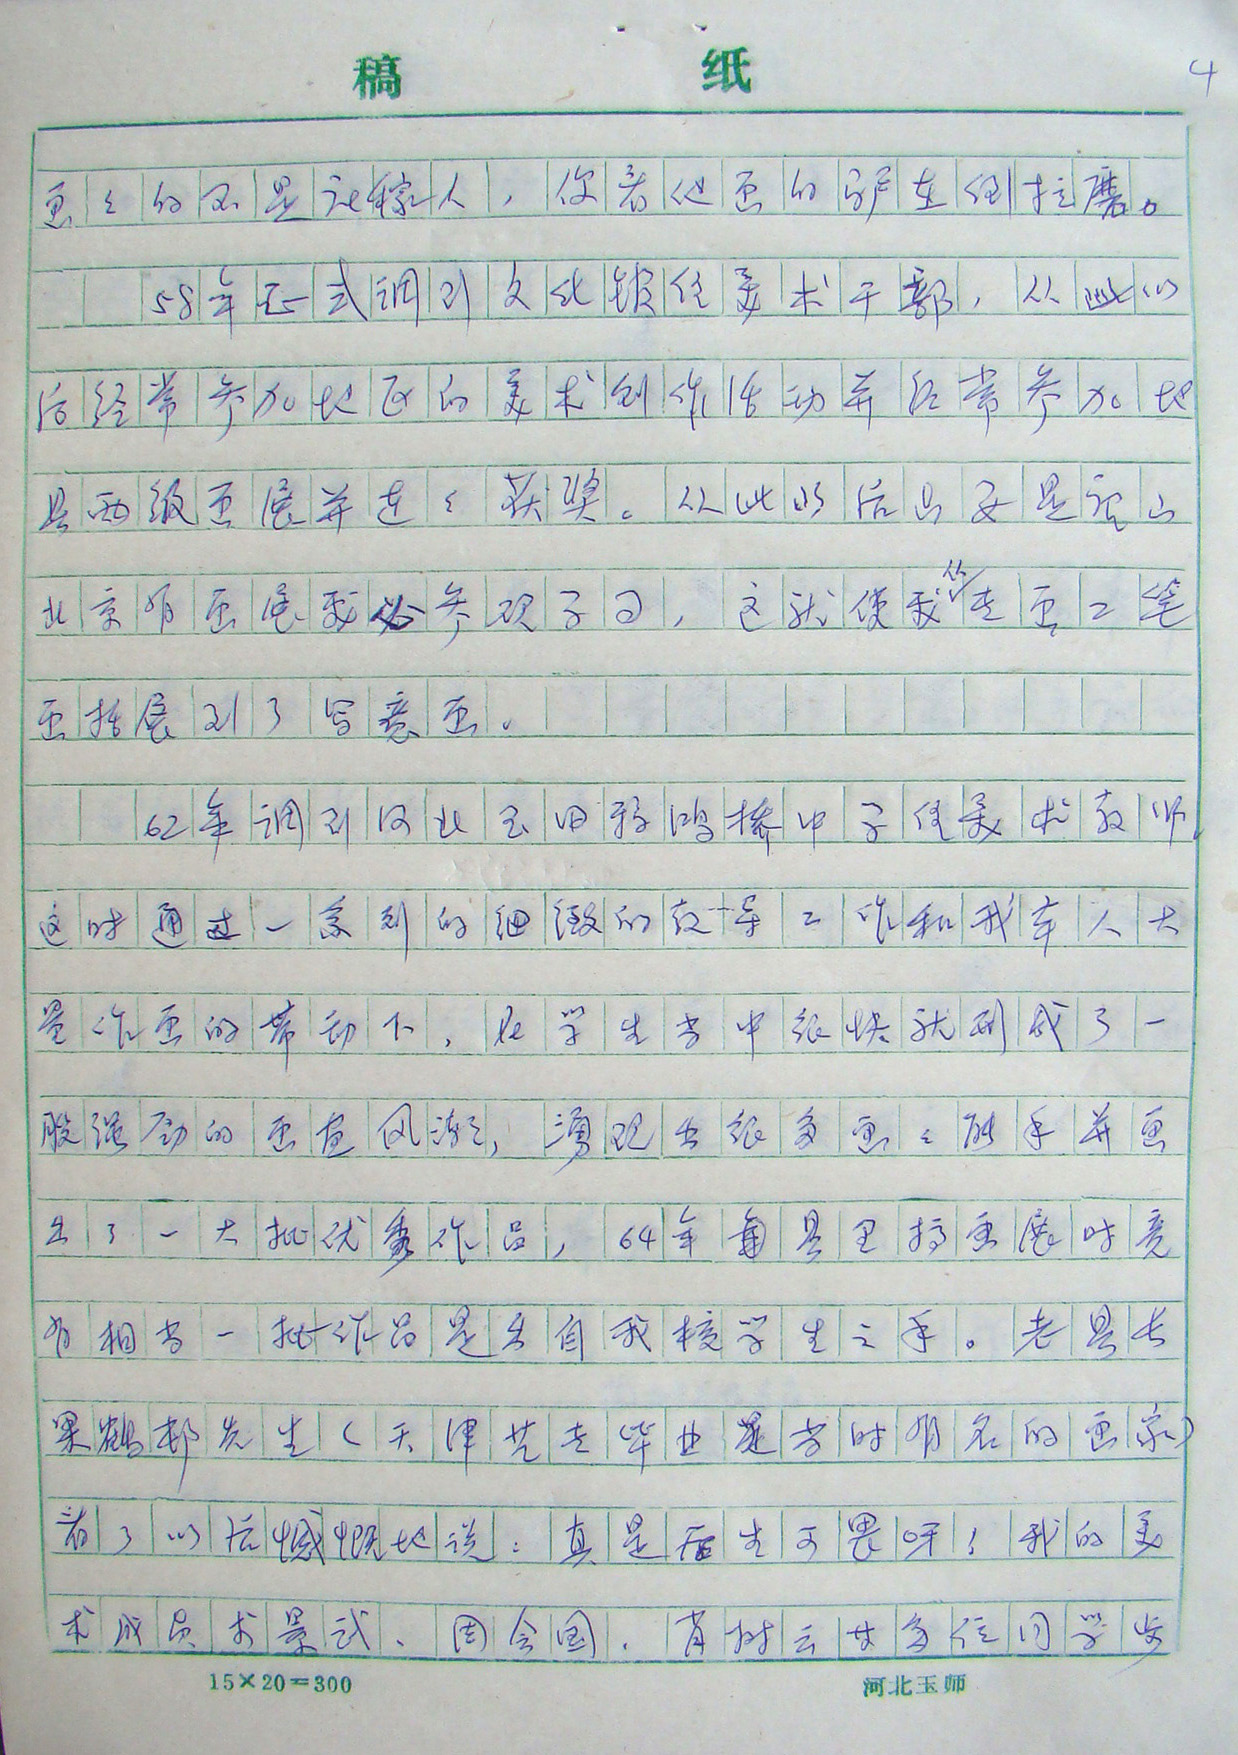 稿 纸
4
画々的不是庄稼人，你看他画的驴在倒拉磨。
58年正式调到文化馆任美术干部，从此以
后经常参加地区的美术创作活动并经常参加地
县两级画展并连々获奖。从此以后只要是唐山
北京有画展我必参观学习，这就使我从走画工笔
画拓展到了写意画。
62年调到河北玉田鸦鸿桥中学任美术教师，
这时通过一系列的细致的教导工作和我本人大
量作画的带动下，在学生当中很快就形成了一
股强劲的画画风潮，涌现出很多画々能手并画
出了一大批优秀作品，64年县里搞画展时竟
有相当一批作品是出自我校学生之手。老县长
果鹤邨先生（天津艺专毕业是当时有名的画家）
看了以后感慨地说：真是后生可畏呀！我的美
术成员 景武、周会国、肖树云女多位同学
15×20=300
河北玉师